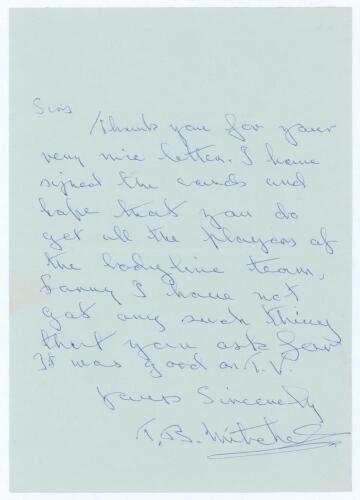 Sirs
Thank you for your
very nice letter. I have
signed the cards and
hope that you do
get all the players of
the bodyline team,
Sorry I have not
got any such thing
that you ask for
It was good on T.V.
Yours Sincerely
T. B. Mitchell